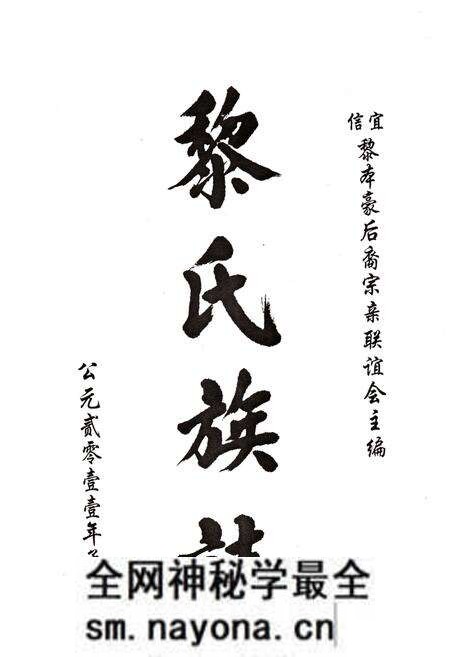 信宜黎本豪后裔宗亲联谊会主编
黎氏族
公元貳零壹壹年
全网神秘学最全
sm.nayona.cn